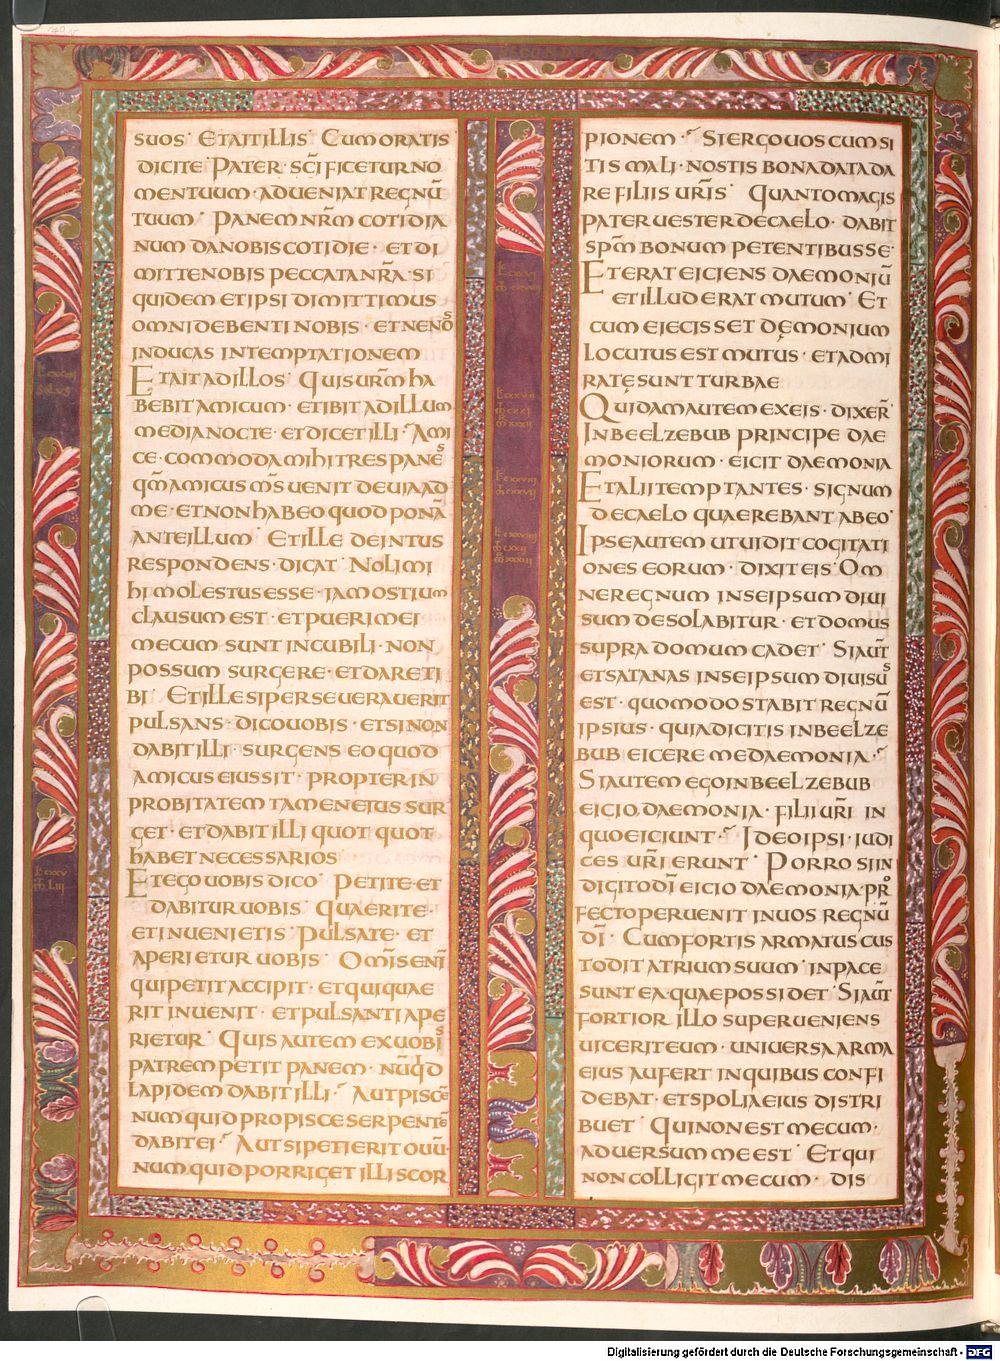 SUOS· ETAITILLIS· CUMORATIS
DICITE· PATER· SC̄IFICETURNO
MENTUUM· ADUENIATREGNŪ
TUUM· PANEMNR̄MCOTIDIA
NUMDANOBISCOTIDIE· ETDI
MITTENOBISPECCATANR̄A· SI
QUIDEMETIPSIDIMITTIMUS
OMNIDEBENTINOBIS· ETNENOS
INDUCASINTEMPTATIONEM
ETAITADILLOS· QUISUR̄MHA
BEBITAMICUM· ETIBITADILLUM·
MEDIANOCTE· ETDICETILLI· AMI
CE· COMMODAMIHITRESPANES
QM̄AMICUSM̄SUENITDEUIAAD
ME· ETNONHABEOQUODPONĀ
ANTEILLUM· ETILLEDEINTUS
RESPONDENS· DICAT· NOLIMI
HIMOLESTUSESSE· IAMOSTIUM
CLAUSUMEST· ETPUERIMEI
MECUMSUNTINCUBILI· NON
POSSUMSURGERE· ETDARETI
BI· ETILLESIPERSEUERAUERIT
PULSANS· DICOUOBIS· ETSINON
DABITILLI· SURGENSEOQUOD
AMICUSEIUSSIT· PROPTERIN
PROBITATEMTAMENEIUSSUR
GET· ETDABITILLIQUOTQUOT
HABETNECESSARIOS·
ETEGOUOBISDICO· PETITE· ET
DABITURUOBIS· QUAERITE·
ETINUENIETIS· PULSATE· ET
APERIETURUOBIS· OM̄ISENĪ
QUIPETITACCIPIT· ETQUIQUAE
RITINUENIT· ETPULSANTIAPE
RIETUR· QUISAUTEMEXUOBIS
PATREMPETITPANEM· NŪQD
LAPIDEMDABITILLI· AUTPISCĒ
NUMQUIDPROPISCESERPENTĒ
DABITEI· AUTSIPETIERITOUŪ·
NUMQUIDPORRIGETILLISCOR
PIONEM· SIERGOUOSCUMSI
TISMALI· NOSTISBONADATADA
REFILIISUR̄IS· QUANTOMAGIS
PATERUESTERDECAELO· DABIT
SPM̄BONUMPETENTIBUSSE·
ETERATEICIENSDAEMONIŪ
ETILLUDERATMUTUM· ET
CUMEIECISSETDĘMONIUM
LOCUTUSESTMUTUS· ETADMI
RATĘSUNTTURBAE
QUIDAMAUTEMEXEIS· DIXER̄·
INBEELZEBUBPRINCIPEDAE
MONIORUM· EICITDAEMONIA
ETALIITEMPTANTES· SIGNUM
DECAELOQUAEREBANTABEO·
IPSEAUTEMUTUIDITCOGITATI
ONESEORUM· DIXITEIS· OM
NEREGNUMINSEIPSUMDIUI
SUMDESOLABITUR· ETDOMUS
SUPRADOMUMCADET· SIAUT̄
ETSATANASINSEIPSUMDIUISUS
EST· QUOMODOSTABITREGNŪ
IPSIUS· QUIADICITISINBEELZE
BUBEICEREMEDAEMONIA·
SIAUTEMEGOINBEELZEBUB
EICIODAEMONIA· FILIIUR̄IIN
QUOEICIUNT· IDEOIPSI· IUDI
CESUR̄IERUNT· PORROSIIN
DIGITODĪEICIODAEMONIA· PRO
FECTOPERUENITINUOSREGNŪ
DĪ· CUMFORTISARMATUSCUS
TODITATRIUMSUUM· INPACE
SUNTEA· QUAEPOSSIDET· SIAUT̄
FORTIORILLOSUPERUENIENS
UICERITEUM· UNIUERSAARMA
EIUSAUFERTINQUIBUSCONFI
DEBAT· ETSPOLIAEIUSDISTRI
BUET· QUINONESTMECUM·
ADUERSUMMEEST· ETQUI
NONCOLLIGITMECUM· DIS
Digitalisierung gefördert durch die Deutsche Forschungsgemeinschaft - DFG